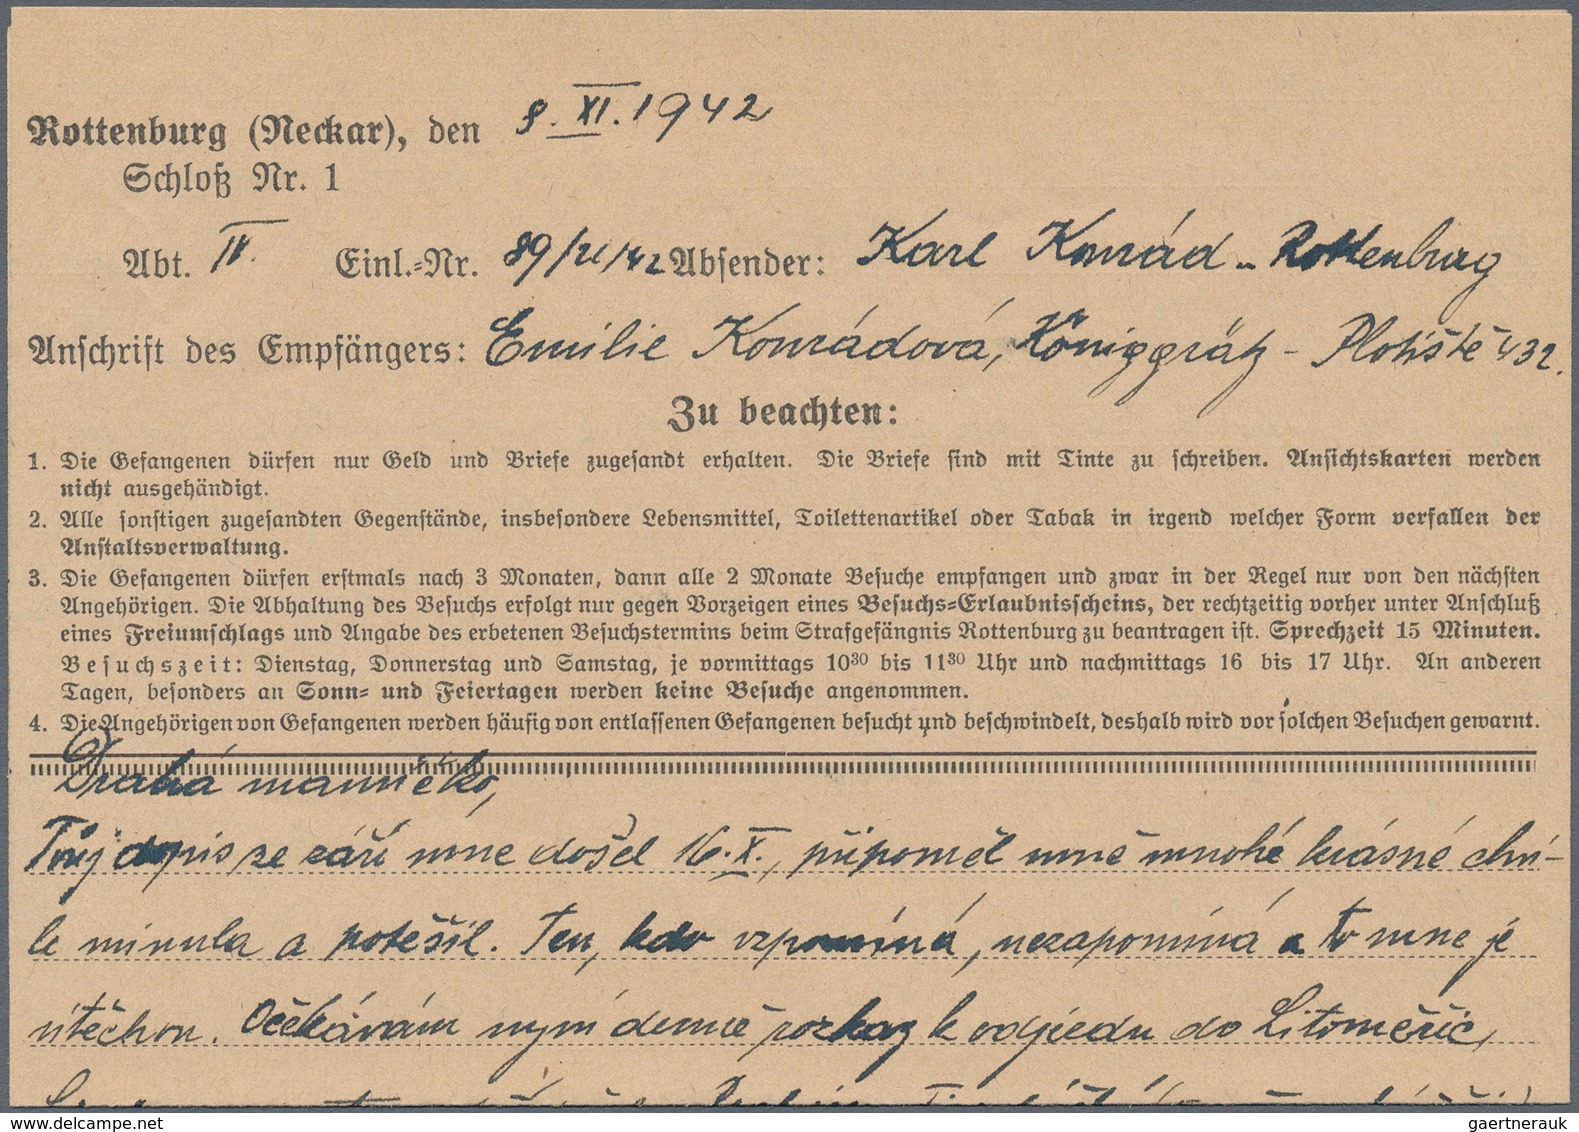 Rottenburg (Neckar), den 8. XI. 1942
Schloß Nr. 1
Abt. IV. Einl.-Nr. 89/21/42 Absender: Karl Konrád - Rottenburg
Anschrift des Empfängers: Emilie Konrádová, Königgrätz - Plotiště 432.
Zu beachten:
1. Die Gefangenen dürfen nur Geld und Briefe zugesandt erhalten. Die Briefe sind mit Tinte zu schreiben. Ansichtskarten werden
nicht ausgehändigt.
2. Alle sonstigen zugesandten Gegenstände, insbesondere Lebensmittel, Toilettenartikel oder Tabak in irgend welcher Form verfallen der
Anstaltsverwaltung.
3. Die Gefangenen dürfen erstmals nach 3 Monaten, dann alle 2 Monate Besuche empfangen und zwar in der Regel nur von den nächsten
Angehörigen. Die Abhaltung des Besuchs erfolgt nur gegen Vorzeigen eines Besuchs-Erlaubnisscheins, der rechtzeitig vorher unter Anschluß
eines Freiumschlags und Angabe des erbetenen Besuchstermins beim Strafgefängnis Rottenburg zu beantragen ist. Sprechzeit 15 Minuten.
Besuchszeit: Dienstag, Donnerstag und Samstag, je vormittags 10³⁰ bis 11³⁰ Uhr und nachmittags 16 bis 17 Uhr. An anderen
Tagen, besonders an Sonn- und Feiertagen werden keine Besuche angenommen.
4. Die Angehörigen von Gefangenen werden häufig von entlassenen Gefangenen besucht und beschwindelt, deshalb wird vor solchen Besuchen gewarnt.
Drahá maminečko,
Tvůj dopis ze září mne došel 16. X., připoměl mně mnohé krásné chví-
le minula a potěšil. Ten, kdo vzpomíná, nezapomíná a to mne je
útěchou. Očekávám nyní denně rozkaz k odjezdu do Litoměřic,
gaertnerauk